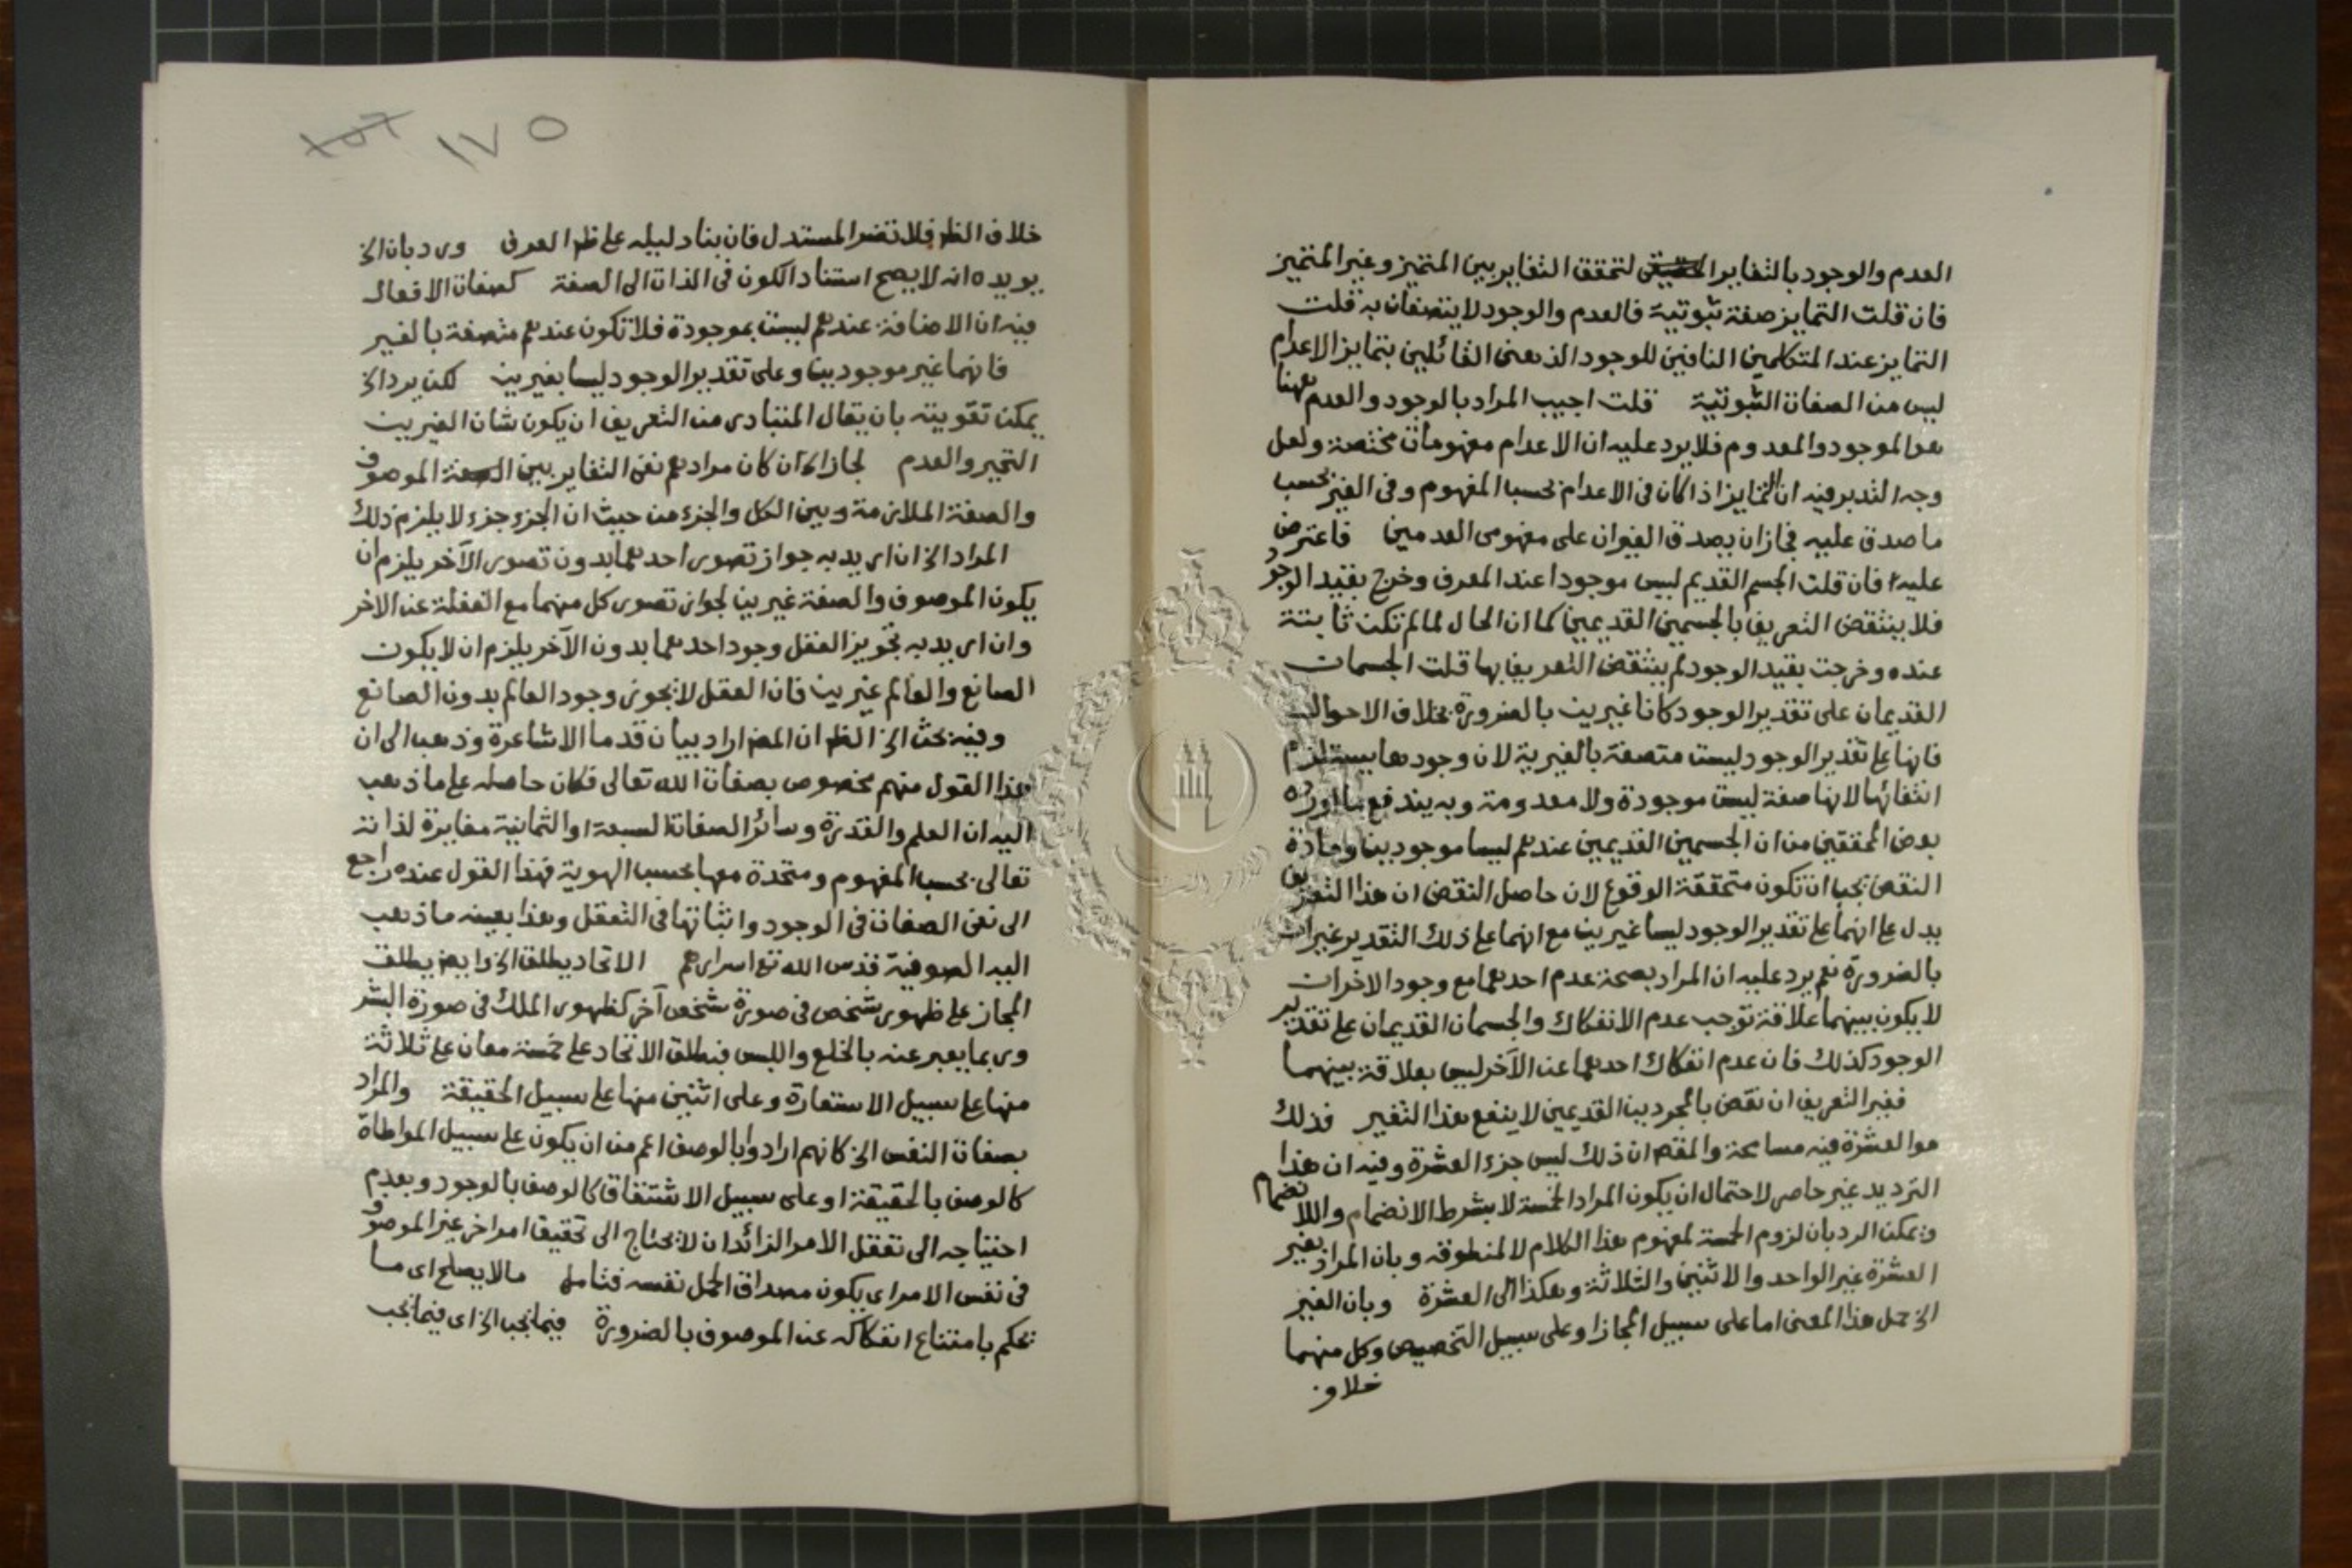 العدم والوجود بالتغاير الحقيقى لتحقق التغاير بين المتحيز وغير المتحيز
فان قلت التمايز صفة ثبوتية فالعدم والوجود لا يتصفان به قلت
التمايز عند المتكلمين النافين للوجود الذهنى القائلين بتمايز الاعدام
ليس من الصفات الثبوتية قلت اجيب المراد بالوجود والعدم ههنا
هو الموجود والمعدوم فلا يرد عليه ان الاعدام مفهومات مختصة ولعل
وجه التدبر فيه ان التمايز اذا كان فى الاعدام بحسب المفهوم وفى الغير بحسب
ما صدق عليه فجاز ان يصدق الغيران على مفهومى العدمين فاعترض
عليه فان قلت الجسم القديم ليس موجودا عند المعرف وخرج بقيد الوجود
فلا ينتقض التعريف بالجسمين القديمين كما ان الحال لما لم تكن ثابتة
عنده وخرجت بقيد الوجود لم ينتقض التعريف بها قلت الجسمان
القديمان على تقدير الوجود كانا غيرين بالضرورة بخلاف الاحوال
فانها على تقدير الوجود ليست متصفة بالغيرية لان وجودها يستلزم
انتفائها لانها صفة ليست موجودة ولا معدومة وبه يندفع ما اورده
بعض المحققين من ان الجسمين القديمين عندهم ليسا موجودين ومادة
النقض يجب ان تكون متحققة الوقوع لان حاصل النقض ان هذا التعريف
يدل على انهما على تقدير الوجود ليسا غيرين مع انهما على ذلك التقدير غيران
بالضرورة نعم يرد عليه ان المراد بصحة عدم احدهما مع وجود الاخر ان
لا يكون بينهما علاقة توجب عدم الانفكاك والجسمان القديمان على تقدير
الوجود كذلك فان عدم انفكاك احدهما عن الآخر ليس بعلاقة بينهما
فغير التعريف ان نقض بالمجردين القديمين لا ينفع هذا التغير فذلك
هو العشرة فيه مسامحة والمقصم ان ذلك ليس جزء العشرة وفيه ان هذا
الترديد غير حاصر لاحتمال ان يكون المراد الخمسة لا بشرط الانضمام واللاانضمام
ويمكن الرد بان لزوم الخمسة لمفهوم هذا الكلام لا لمنطوقه وبان المراد بغير
العشرة غير الواحد والاثنين والثلاثة وهكذا الى العشرة وبان الغير
الخ حمل هذا المعنى اما على سبيل المجاز او على سبيل التخصيص وكل منهما
خلاف
١٧٥
خلاف الظهر فلا تضر المستدل فان بناء دليله على ظهر العرف ورد بان الخ
يويده انه لا يصح استناد الكون فى الذات الى الصفة كصفات الافعال
فيه ان الاضافة عندهم ليست بموجودة فلا تكون عندهم متصفة بالغير
فانهما غير موجودين وعلى تقدير الوجود ليسا بغيرين لكن يرد الخ
يمكن تقويته بان يقال المتبادر من التعريف ان يكون شان الغيرين
التحيز والعدم لجاز الخ ان كان مرادهم نفى التغاير بين الصفة الموصوف
والصفة الملازمة وبين الكل والجزء من حيث ان الجزء جزء لا يلزم ذلك
المراد الخ ان اريد به جواز تصور احدهما بدون تصور الآخر يلزم ان
يكون الموصوف والصفة غيرين لجواز تصور كل منهما مع الغفلة عن الاخر
وان اريد به تجويز العقل وجود احدهما بدون الآخر يلزم ان لا يكون
الصانع والعالم غيرين فان العقل لا يجوز وجود العالم بدون الصانع
وفيه بحث الخ الظهر ان المض اراد بيان قدما الاشاعرة وذهب الى ان
هذا القول منهم مخصوص بصفات الله تعالى فكان حاصله على ما ذهب
اليه ان العلم والقدرة وسائر الصفات السبعة او الثمانية مغايرة لذاته
تعالى بحسب المفهوم ومتحدة معها بحسب الهوية فهذا القول عنده راجع
الى نفى الصفات فى الوجود واثباتها فى التعقل وهذا بعينه ما ذهب
اليه الصوفية قدس الله تع اسرارهم الاتحاد يطلق الخ وايض يطلق
المجاز على ظهور شخص فى صورة شخص آخر كظهور الملك فى صورة البشر
وربما يعبر عنه بالخلع واللبس فيطلق الاتحاد على خمسة معان على ثلاثة
منها على سبيل الاستعارة وعلى اثنين منها على سبيل الحقيقة والمراد
بصفات النفس الخ كانهم ارادوا بالوصف اعم من ان يكون على سبيل المواطاة
كالوصف بالحقيقة او على سبيل الاشتقاق كالوصف بالوجود وبعدم
احتياجه الى تعقل الامر الزائد ان لا يحتاج الى تحقيق امر اخر غير الموصوف
فى نفس الامر اى يكون مصداق الحمل نفسه فتامل ما لا يصلح اى ما
نحكم بامتناع انفكاكه عن الموصوف بالضرورة فيما نجب الخ اى فيما نجب